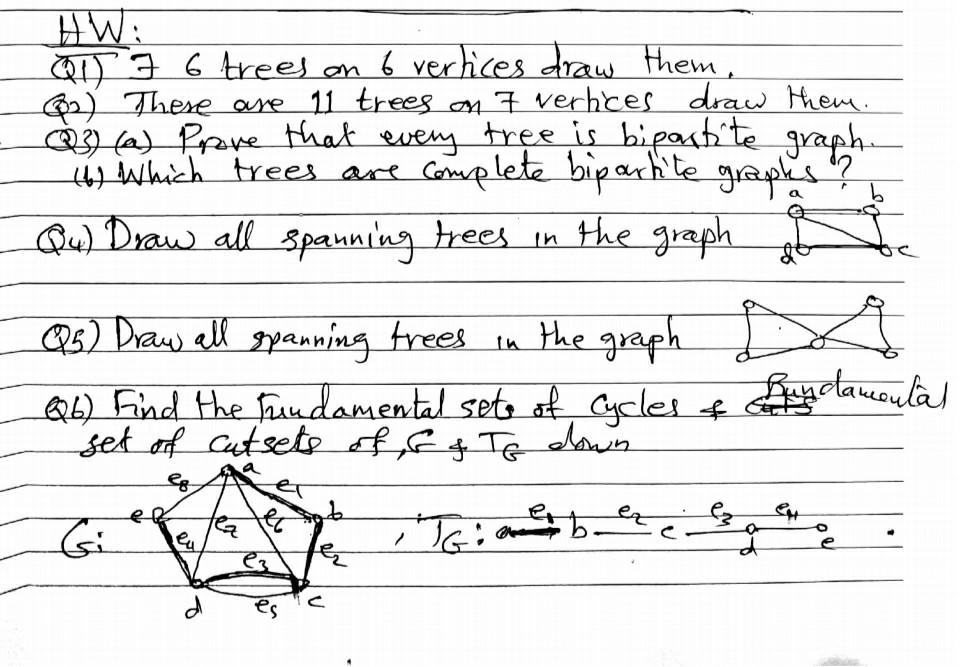 HW:
Q1) ∃ 6 trees on 6 vertices draw them.
Q2) There are 11 trees on 7 vertices draw them.
Q3) (a) Prove that every tree is bipartite graph.
(b) Which trees are complete bipartite graphs?
a b
Q4) Draw all spanning trees in the graph
d c
Q5) Draw all spanning trees in the graph
Q6) Find the Fundamental sets of cycles & Fundamental
set of cutsets of G & TG down
a
e8 e1
e e7 e6 b
G: e4 e3 e2
d e5 c
, TG: a e1 b e2 c e3 d e4 e .